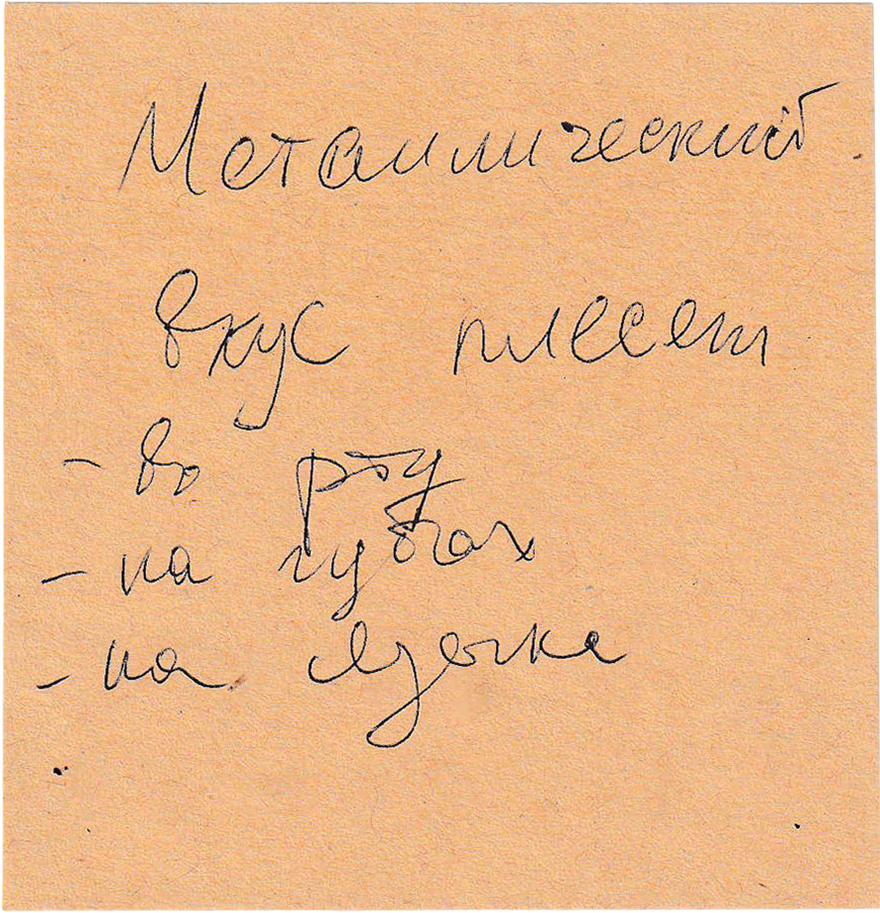 Металлический
вкус плесени
- во рту
- на губах
- на языке